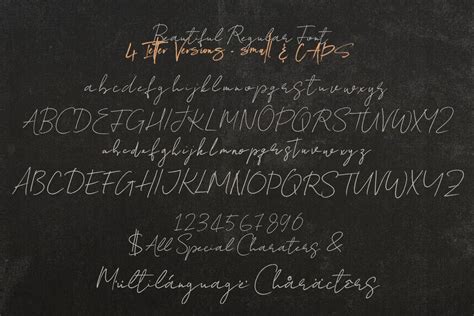 Beautiful Regular Font
4 letter Versions - small & CAPS
abcdefghijklmnopqrstuvwxyz
ABCDEFGHIJKLMNOPQRSTUVWXYZ
abcdefghijklmnopqrstuvwxyz
ABCDEFGHIJKLMNOPQRSTUVWXYZ
1234567890
$ All Special Charaters &
Multilánguagè Chåräcters